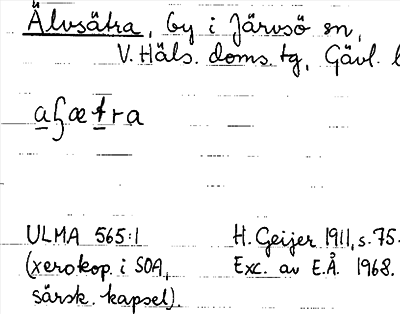 Älvsätra, by i Järvsö sn,
V. Häls. doms. tg, Gävl. l
aꞕætra
ULMA 565:1 H. Geijer 1911, s. 75.
(xerokop. i SOA, Exc. av E.Å. 1968.
särsk. kapsel).